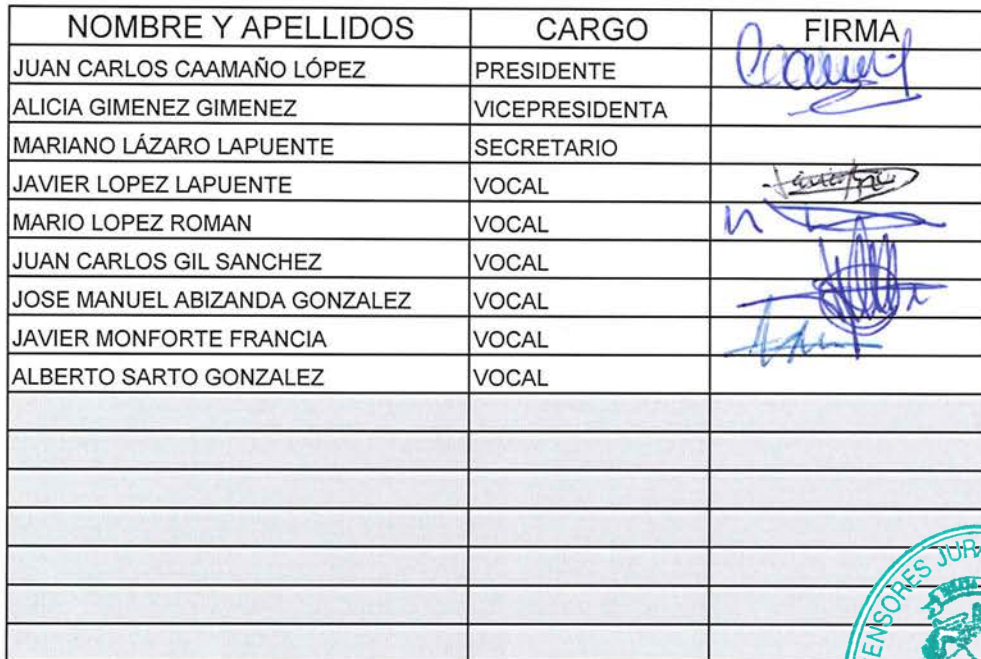 NOMBRE Y APELLIDOS CARGO FIRMA
JUAN CARLOS CAAMAÑO LÓPEZ PRESIDENTE
ALICIA GIMENEZ GIMENEZ VICEPRESIDENTA
MARIANO LÁZARO LAPUENTE SECRETARIO
JAVIER LOPEZ LAPUENTE VOCAL
MARIO LOPEZ ROMAN VOCAL
JUAN CARLOS GIL SANCHEZ VOCAL
JOSE MANUEL ABIZANDA GONZALEZ VOCAL
JAVIER MONFORTE FRANCIA VOCAL
ALBERTO SARTO GONZALEZ VOCAL
ENSORES JUR